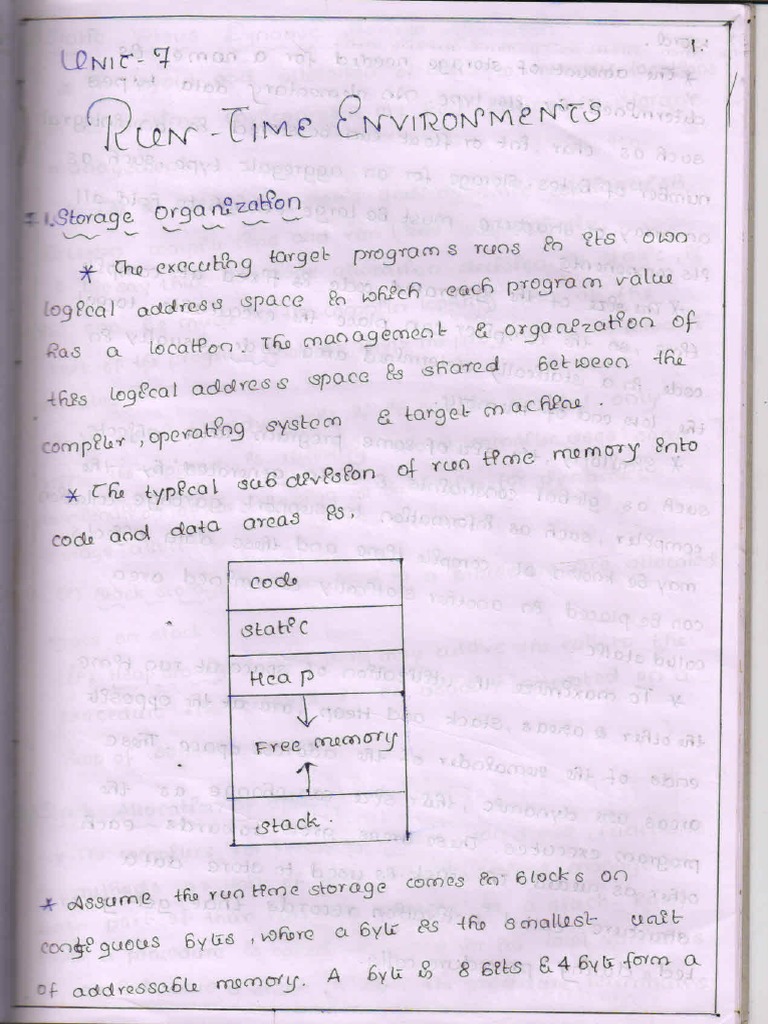 1.
UNIT-7
RUN-TIME ENVIRONMENTS
7.1. Storage Organization
* The executing target programs runs in its own
logical address space in which each program value
has a location. The management & organization of
this logical address space is shared between the
compiler, operating system & target machine.
* The typical subdivision of run time memory into
code and data areas is,
code
static
Heap
Free memory
stack.
* Assume the run time storage comes in blocks on
contiguous bytes, where a byte is the smallest unit
of addressable memory. A byte is 8 bits & 4 byte form a